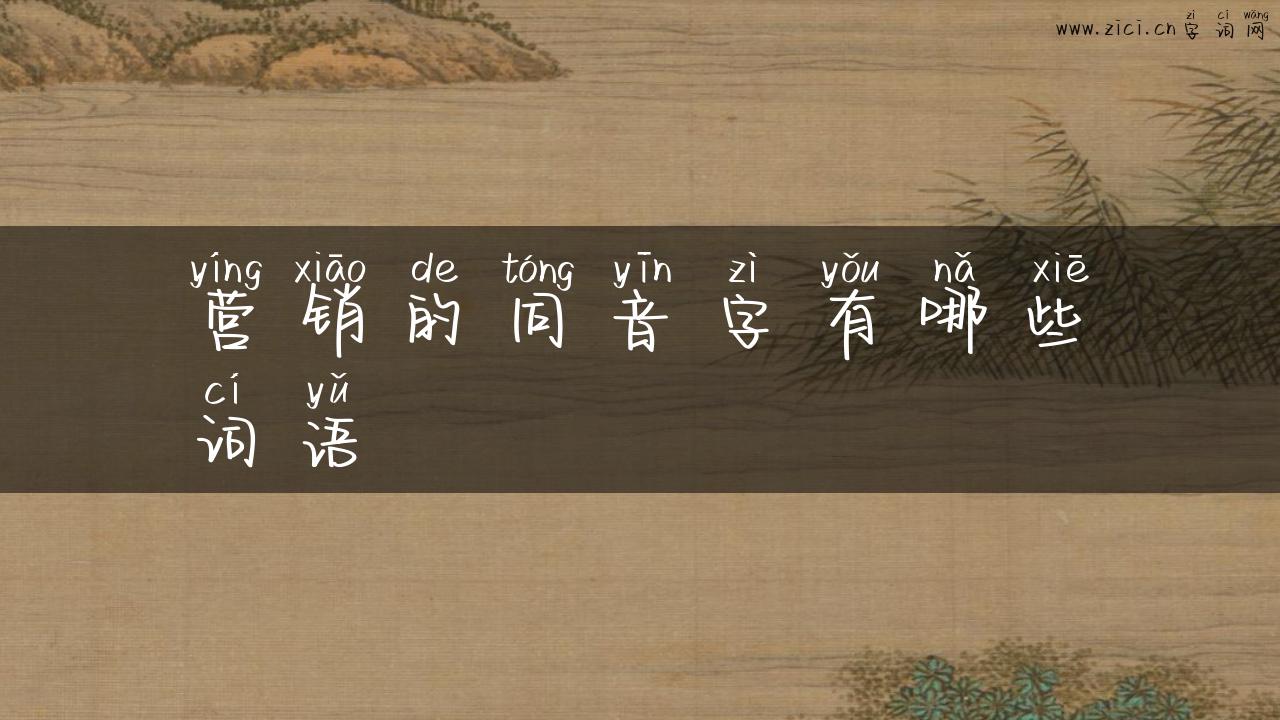 zì cí wǎng
www.zici.cn 字词网
yíng xiāo de tóng yīn zì yǒu nǎ xiē
营销的同音字有哪些
cí yǔ
词语